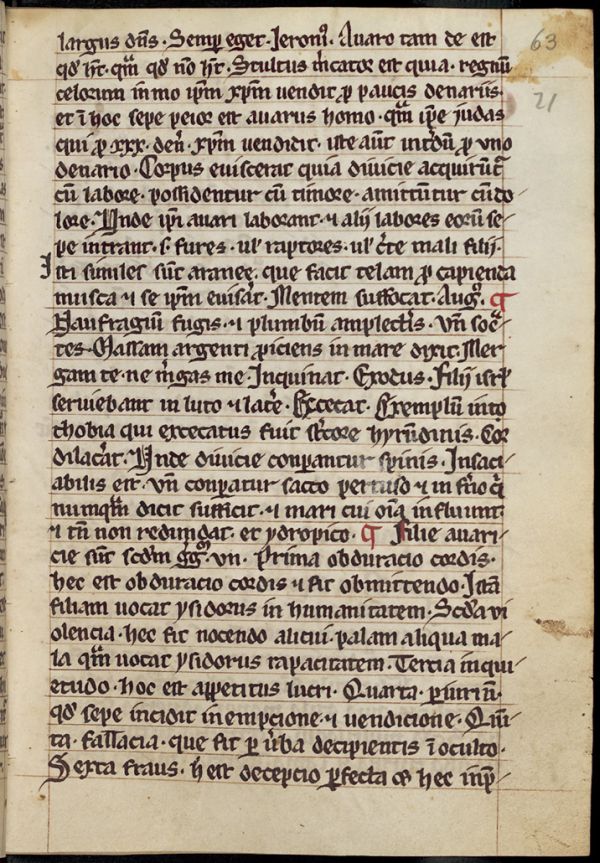 largus dn̄s · Semꝑ eget · Jeronͥ. Avaro tam de est
qd̄ ht̄ · qm̄ qd̄ nō ht̄ · Stultus m̄cator est quia · regnū
celorum immo ip̄m xp̄m vendit ꝓ paucis denariis ·
et ī hoc sepe peior est avarus homo · qm̄ ip̄e judas
qui ꝓ xxx · den̄ · xp̄m vendidit · iste aūt int̄dū ꝓ vno
denario · Corpus eviscerat quia divicie acquirūt᷑
cū labore · possidentur cū timore · amittūtur cū do
lore · Unde ip̄i avari laborant · ⁊ alij labores eorū se-
pe intrant · s · fures · ul̄ raptores · ul̄ c̄te mali filij ·
Isti similes sūt aranee · que facit telam ꝓ capienda
musca ⁊ se ip̄m evisc̄at · Mentem suffocat · Augͦ. ¶
Naufragiū fugis · ⁊ plumbū amplect̄is · vn̄ soc᷑-
tes · Massam argenti ꝓiciens in mare dixit · Mer
gam te · ne m̄gas me · Inquinat · Exodus · Filij isrl̄
serviebant in luto ⁊ lat̄e · Excecat · Exemplū in to
thobia qui excecatus fuit st̄core hyrūdinis · Cor
dilac̄at · Unde divicie conꝑantur spinis · Insaci-
abilis est · vn̄ conꝑatur sacco pertuso ⁊ inf̄no q̄
nūmqm̄ dicit sufficit · ⁊ mari cui oīa influunt
⁊ tn̄ non redundat · et ydropico · ¶ Filie avari-
cie sūt scd̄m gḡ · vn · Prima obduracio cordis ·
hec est obduracio cordis ⁊ fit obmittendo · Istā
filiam vocat ysidorus inhumanitatem · Scd̄a vi
olencia · hec fit nocendo alicui · palam aliqua ma-
la qm̄ vocat ysidorus rapacitatem · Tercia inqui-
etudo · hoc est appetitus lucri · Quarta · ꝑiuriū
qd̄ sepe incidit in empcione · ⁊ vendicione · Quī
ta · fallacia · que fit ꝑ v̄ba decipientis ī oculto ·
Sexta fraus · h̄ est decepcio ꝑfecta hec inp̄-
63
21